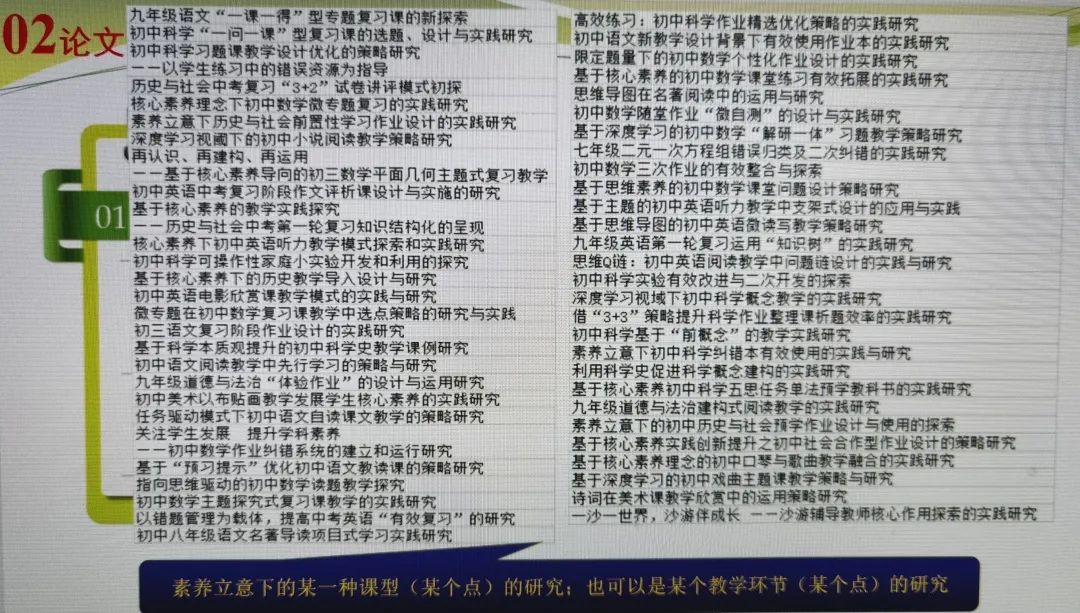 02论文
01
九年级语文“一课一得”型专题复习课的新探索
初中科学“一问一课”型复习课的选题、设计与实践研究
初中科学习题课教学设计优化的策略研究
——以学生练习中的错误资源为指导
历史与社会中考复习“3+2”试卷讲评模式初探
核心素养理念下初中数学微专题复习的实践研究
素养立意下历史与社会前置性学习作业设计的实践研究
深度学习视阈下的初中小说阅读教学策略研究
再认识、再建构、再运用
——基于核心素养导向的初三数学平面几何主题式复习教学
初中英语中考复习阶段作文评析课设计与实施的研究
基于核心素养的教学实践探究
——历史与社会中考第一轮复习知识结构化的呈现
核心素养下初中英语听力教学模式探索和实践研究
初中科学可操作性家庭小实验开发和利用的探究
基于核心素养下的历史教学导入设计与研究
初中英语电影欣赏课教学模式的实践与研究
微专题在初中数学复习课教学中选点策略的研究与实践
初三语文复习阶段作业设计的实践研究
基于科学本质观提升的初中科学史教学课例研究
初中语文阅读教学中先行学习的策略与研究
九年级道德与法治“体验作业”的设计与运用研究
初中美术以布贴画教学发展学生核心素养的实践研究
任务驱动模式下初中语文自读课文教学的策略研究
关注学生发展 提升学科素养
——初中数学作业纠错系统的建立和运行研究
基于“预习提示”优化初中语文教读课的策略研究
指向思维驱动的初中数学读题教学探究
初中数学主题探究式复习课教学的实践研究
以错题管理为载体，提高中考英语“有效复习”的研究
初中八年级语文名著导读项目式学习实践研究
高效练习：初中科学作业精选优化策略的实践研究
初中语文新教学设计背景下有效使用作业本的实践研究
限定题量下的初中数学个性化作业设计的实践研究
基于核心素养的初中数学课堂练习有效拓展的实践研究
思维导图在名著阅读中的运用与研究
初中数学随堂作业“微自测”的设计与实践研究
基于深度学习的初中数学“解研一体”习题教学策略研究
七年级二元一次方程组错误归类及二次纠错的实践研究
初中数学三次作业的有效整合与探索
基于思维素养的初中数学课堂问题设计策略研究
基于主题的初中英语听力教学中支架式设计的应用与实践
基于思维导图的初中英语微读写教学策略研究
九年级英语第一轮复习运用“知识树”的实践研究
思维Q链：初中英语阅读教学中问题链设计的实践与研究
初中科学实验有效改进与二次开发的探索
深度学习视域下初中科学概念教学的实践研究
借“3+3”策略提升科学作业整理课析题效率的实践研究
初中科学基于“前概念”的教学实践研究
素养立意下初中科学纠错本有效使用的实践与研究
利用科学史促进科学概念建构的实践研究
基于核心素养初中科学五思任务单法预学教科书的实践研究
九年级道德与法治建构式阅读教学的实践研究
素养立意下的初中历史与社会预学作业设计与使用的探索
基于核心素养实践创新提升之初中社会合作型作业设计的策略研究
基于核心素养理念的初中口琴与歌曲教学融合的实践研究
基于深度学习的初中戏曲主题课教学策略与研究
诗词在美术课教学欣赏中的运用策略研究
一沙一世界，沙游伴成长 ——沙游辅导教师核心作用探索的实践研究
素养立意下的某一种课型（某个点）的研究；也可以是某个教学环节（某个点）的研究